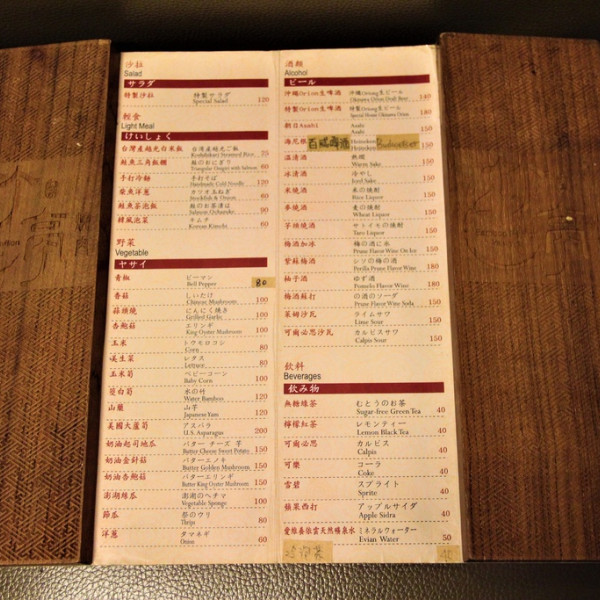 沙拉
Salad
サラダ
特製沙拉 特製サラダ 120
Special Salad
輕食
Light Meal
けいしょく
台灣產越光白米飯 台湾産越光ご飯 25
Koshihikari Steamed Rice
鮭魚三角飯糰 鮭のおにぎり
Triangular Onigiri with Salmon 60
手打冷麵 手打そば
Handmade Cold Noodle 120
柴魚洋蔥 カツオ玉ねぎ
Stockfish & Onion 60
鮭魚茶泡飯 鮭のお茶漬は
Salmon Ochazuke 90
韓風泡菜 キムチ
Korean Kimchi 60
野菜
Vegetable
ヤサイ
青椒 ピーマン 80
Bell Pepper
香菇 しいたけ
Chinese Mushroom 100
蒜頭燒 にんにく焼き
Grilled Garlic 60
杏鮑菇 エリンギ
King Oyster Mushroom 100
玉米 トウモロコシ
Corn 80
嘆生菜 レタス
Lettuce 80
玉米筍 ベビーコーン
Baby Corn 100
筊白筍 水の竹
Water Bamboo 120
山藥 山芋
Japanese Yam 120
美國大蘆筍 アスパラ
U.S. Asparagus 200
奶油起司地瓜 バター チーズ 芋
Butter Cheese Sweet Potato 150
奶油金針菇 バターエノキ
Butter Golden Mushroom 150
奶油杏鮑菇 バターエリンギ
Butter King Oyster Mushroom 150
澎湖絲瓜 澎湖のヘチマ
Vegetable Sponge 100
節瓜 祭のウリ
60
洋蔥 タマネギ
Onion 60
酒類
Alcohol
ビール
沖繩Orion生啤酒 沖縄Orion生ビール
Okinawa Orion Draft Beer 140
特製Orion生啤酒 特製Orion生ビール
Special Draft Okinawa Orion 180
朝日Asahi Asahi
Asahi 150
海尼根 百威啤酒 Heineken Budweiser
Heineken
溫清酒 熱燗
Warm Sake 150
冰清酒 冷やし
Iced Sake 150
米燒酒 米の焼酎
Rice Liquor 150
麥燒酒 麦の焼酎
Wheat Liquor 150
芋頭燒酒 サトイモの焼酎
Taro Liquor 150
梅酒加冰 梅の酒に氷
Prune Flavor Wine On Ice 150
紫蘇梅酒 シソの梅の酒
Perilla Prune Flavor Wine 180
柚子酒 ゆず酒
Pomelo Flavor Wine 180
梅酒蘇打 の酒のソーダ
Prune Flavor Wine Soda 150
萊姆沙瓦 ライムサワ
Lime Sour 150
可爾必思沙瓦 カルピスサワ
Calpis Sour 150
飲料
Beverages
飲み物
無糖綠茶 むとうのお茶
Sugar-free Green Tea 40
檸檬紅茶 レモンティー
Lemon Black Tea 40
可爾必思 カルピス
Calpis 40
可樂 コーラ
Coke 40
雪碧 スプライト
Sprite 40
蘋果西打 アップルサイダ
Apple Sidra 40
愛維養依雲天然礦泉水 ミネラルウォーター
Evian Water 50